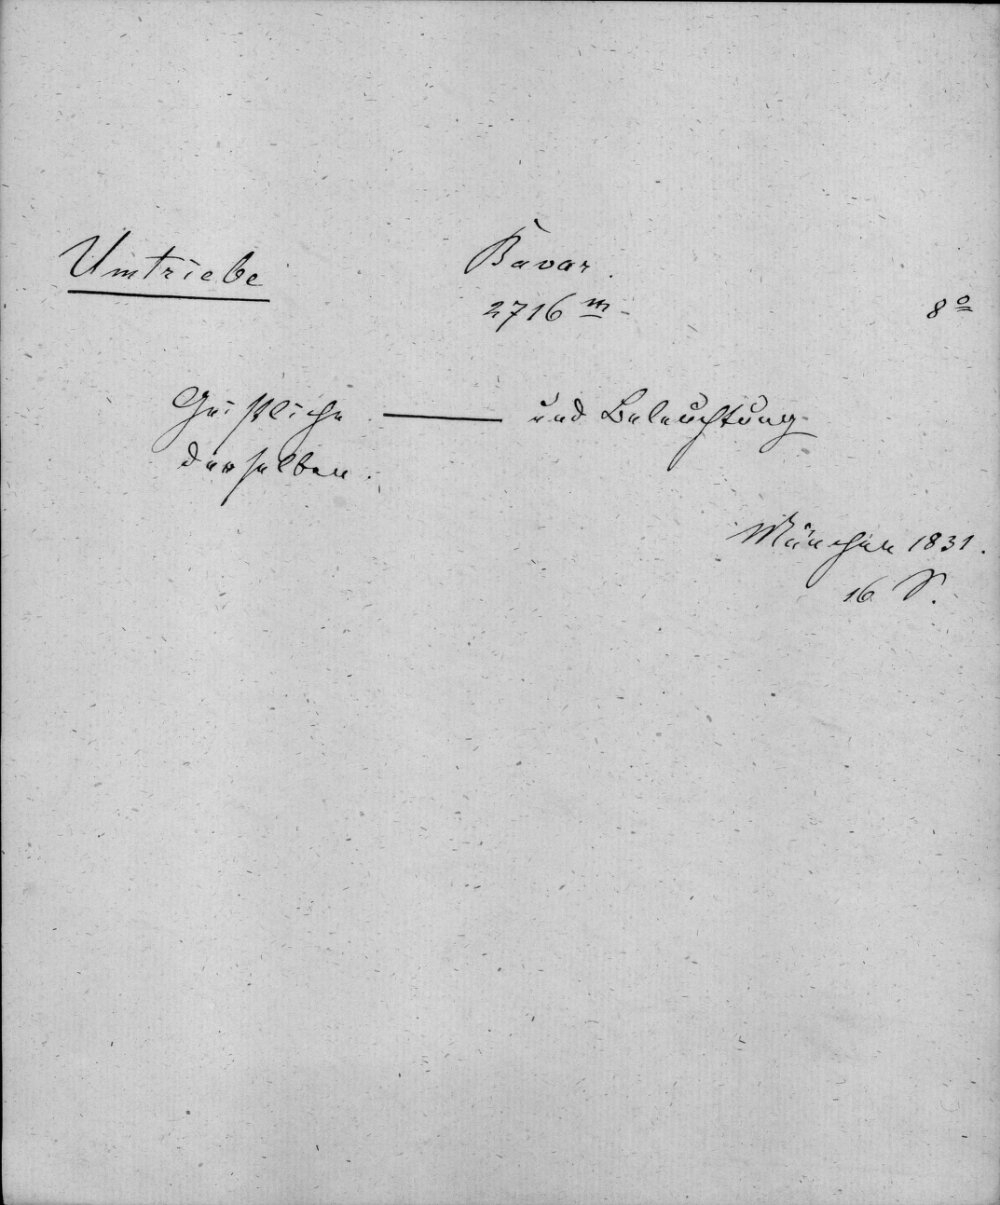 Umtriebe
Bavar.
2716 m.
8o
Geistliche —— und Beleuchtung
derselben.
München 1831.
16 S.